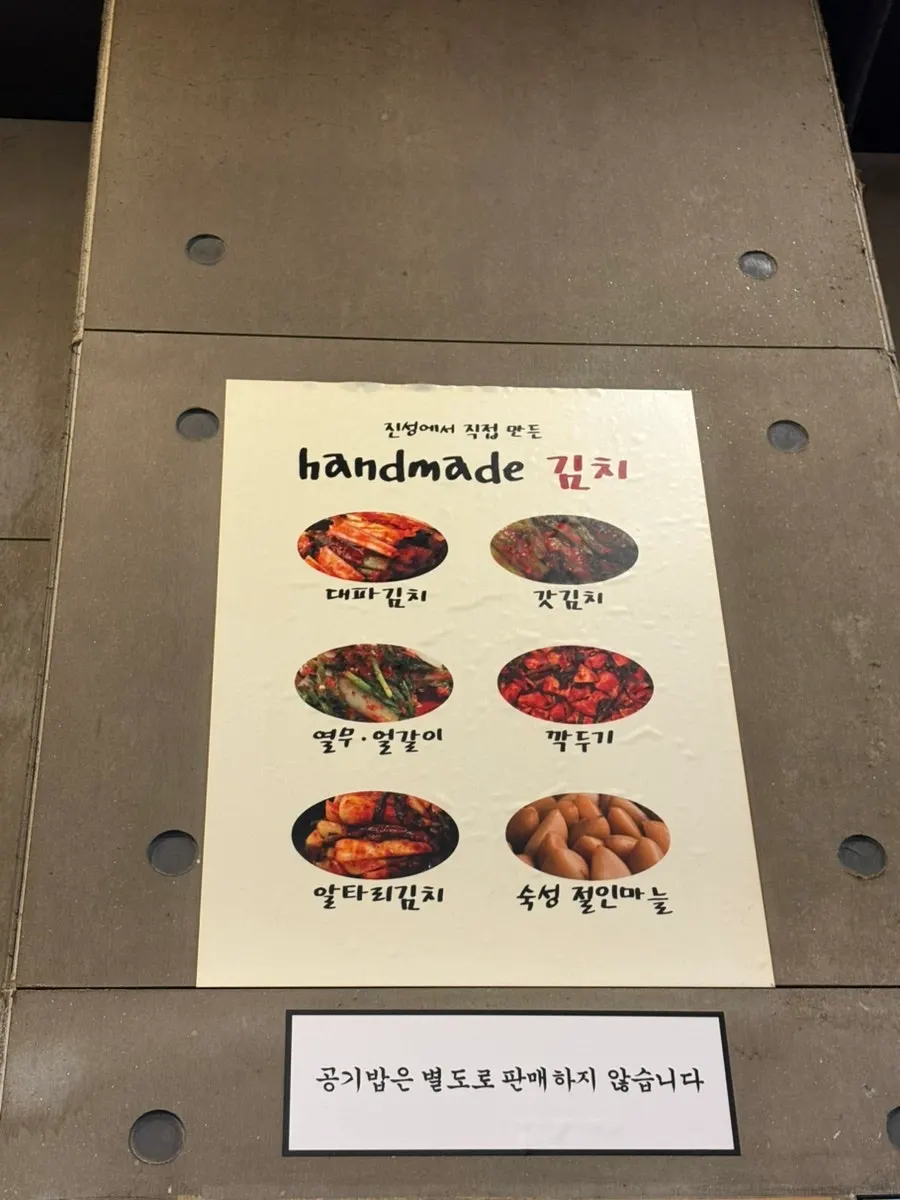 진성에서 직접 만든
handmade 김치
대파김치 갓김치
열무·얼갈이 깍두기
알타리김치 숙성 절인마늘
공기밥은 별도로 판매하지 않습니다